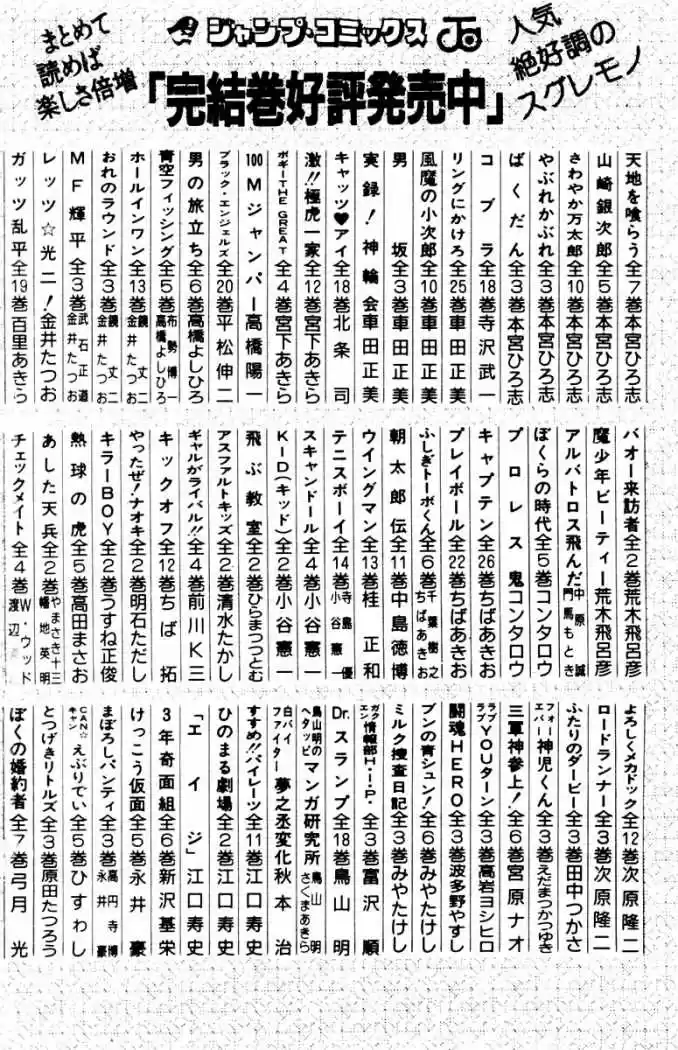 まとめて
読めば
楽しさ倍増
ジャンプ・コミックス
人気
絶好調の
スグレモノ
「完結巻好評発売中」
天地を喰らう全7巻本宮ひろ志
山崎銀次郎全5巻本宮ひろ志
さわやか万太郎全10巻本宮ひろ志
やぶれかぶれ全3巻本宮ひろ志
ばくだん全3巻本宮ひろ志
コブラ全18巻寺沢武一
リングにかけろ全25巻車田正美
風魔の小次郎全10巻車田正美
男坂全3巻車田正美
実録!神輪会車田正美
キャッツ♥アイ全18巻北条司
激!!極虎一家全12巻宮下あきら
ボギーTHE GREAT全4巻宮下あきら
100Mジャンパー高橋陽一
ブラック・エンジェルズ全20巻平松伸二
男の旅立ち全6巻高橋よしひろ
青空フィッシング全5巻布勢博一高橋よしひろ
ホールインワン全13巻鏡丈二金井たつお
おれのラウンド全3巻鏡丈二金井たつお
MF輝平全3巻武石正道金井たつお
レッツ☆光二!金井たつお
ガッツ乱平全19巻百里あきら
バオー来訪者全2巻荒木飛呂彦
魔少年ビーティー荒木飛呂彦
アルバトロス飛んだ中原誠門馬もとき
ぼくらの時代全5巻コンタロウ
プロレス鬼コンタロウ
キャプテン全26巻ちばあきお
プレイボール全22巻ちばあきお
ふしぎトーボくん全6巻千葉樹之ちばあきお
朝太郎伝全11巻中島徳博
ウイングマン全13巻桂正和
テニスボーイ全14巻寺島優小谷憲一
スキャンドール全4巻小谷憲一
KID(キッド)全2巻小谷憲一
飛ぶ教室全2巻ひらまつつとむ
アスファルトキッズ全2巻清水たかし
ギャルがライバル!!全4巻前川K三
キックオフ全12巻ちば拓
やったぜ!ナオキ全2巻明石ただし
キラーBOY全2巻うすね正俊
熱球の虎全5巻高田まさお
あした天兵全2巻やまさき十三幡地英明
チェックメイト全4巻W・ウッド渡辺
よろしくメカドック全12巻次原隆二
ロードランナー全3巻次原隆二
ふたりのダービー全3巻田中つかさ
フォーエバー神児くん全3巻えだまつかつゆき
三軍神参上!全6巻宮原ナオ
ラブラブYOUターン全3巻高岩ヨシヒロ
闘魂HERO全3巻波多野やすし
ブンの青シュン!全6巻みやたけし
ミルク捜査日記全3巻みやたけし
ガクエン情報部H・I・P・全3巻富沢順
Dr.スランプ全18巻鳥山明
鳥山明のヘタッピマンガ研究所鳥山明さくまあきら
白バイファイター夢之丞変化秋本治
すすめ!!パイレーツ全11巻江口寿史
ひのまる劇場全2巻江口寿史
「エイジ」江口寿史
3年奇面組全6巻新沢基栄
けっこう仮面全5巻永井豪
まぼろしパンティ全3巻高円寺博永井豪
CAN☆キャンえぶりてぃ全5巻ひすわし
とつげきリトルズ全3巻原田たつろう
ぼくの婚約者全7巻弓月光